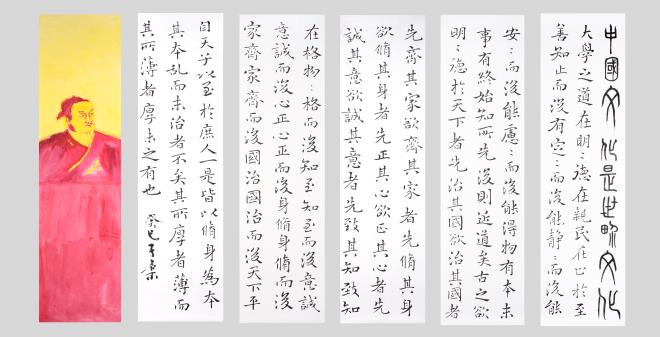 中國文化是世界文化
大學之道在明：德在親民在止於至
善知止而後有定：而後能靜：而後能
安：而後能慮：而後能得物有本末
事有終始知所先後則近道矣古之欲
明：德於天下者先治其國欲治其國者
先齊其家欲齊其家者先脩其身
欲脩其身者先正其心欲正其心者先
誠其意欲誠其意者先致其知致知
在格物：格而後知至知至而後意誠
意誠而後心正心正而後身脩身脩而後
家齊家齊而後國治國治而後天下平
自天子以至於庶人一是皆以脩身為本
其本乱而末治者不矣其所厚者薄而
其所薄者厚未之有也
癸巳